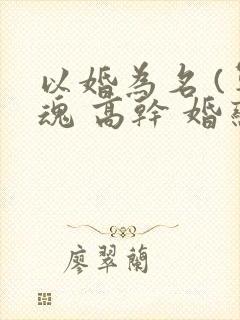 以婚為名(
魂 高幹 婚
廖翠蘭